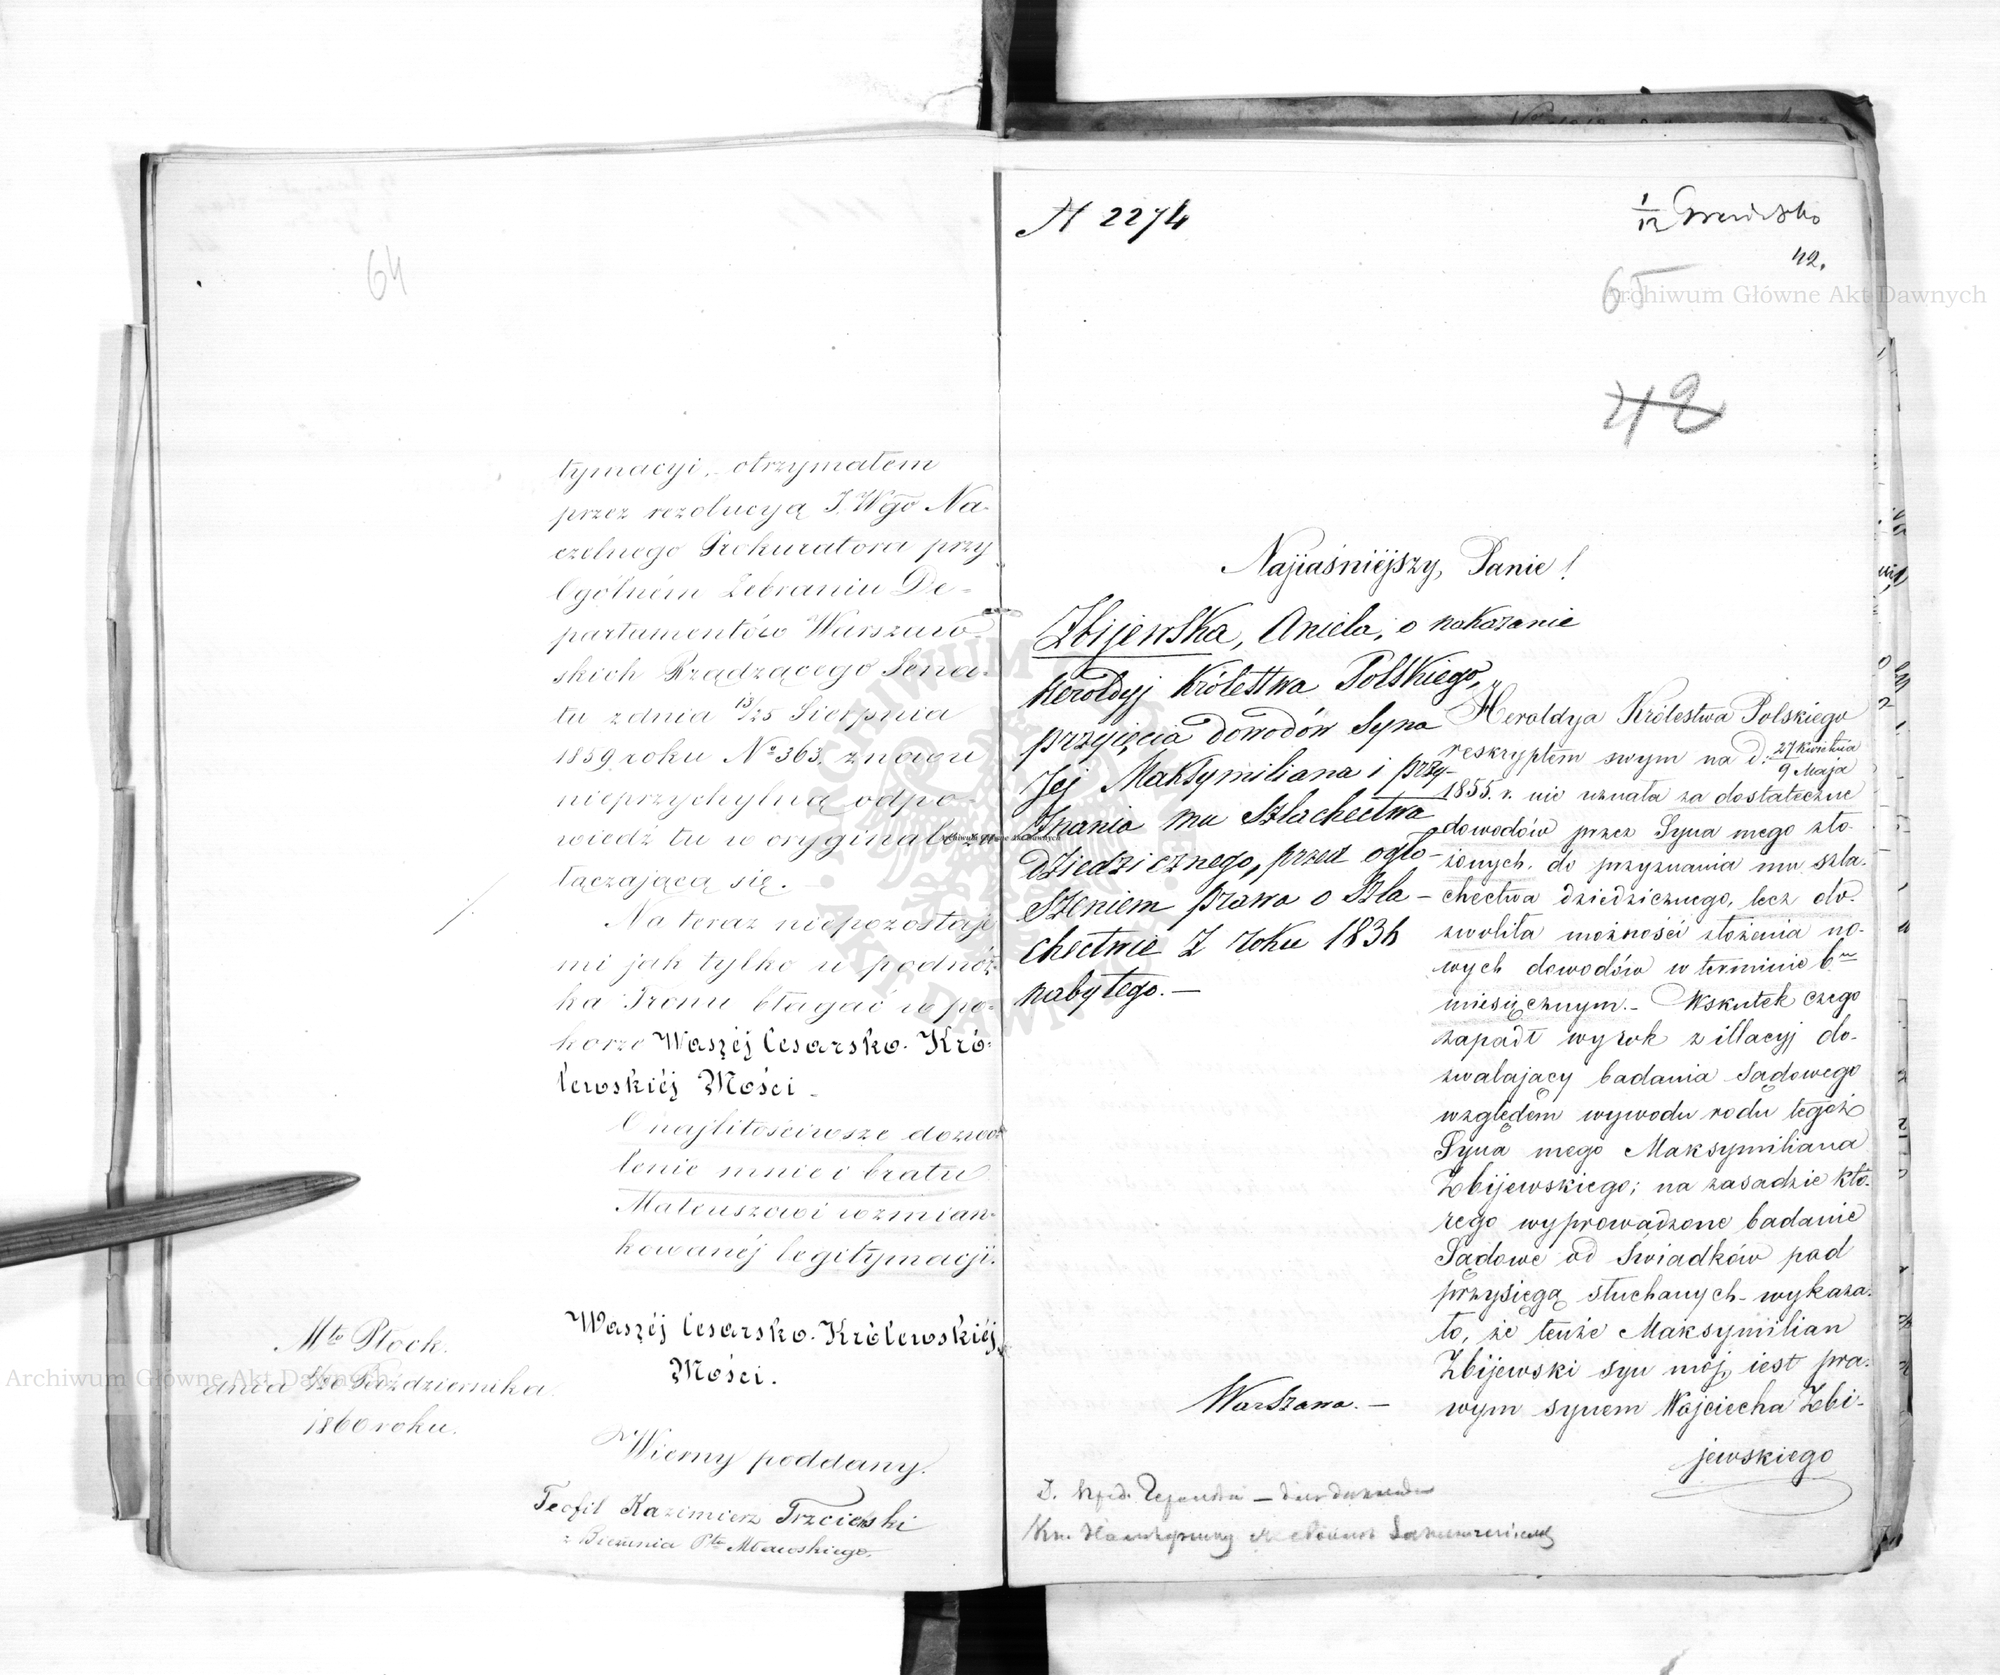 64
tymacyi, otrzymałem
przez rezolucyą J. Wgo Na-
czelnego Prokuratora przy
Ogólném Zebraniu De-
partamentów Warszaw-
skich Rządzącego Sena-
tu z dnia 13/25 Sierpnia
1859 roku No 363. znowu
nieprzychylną odpo-
wiedź tu w oryginale za-
łączającą się.
Na teraz niepozostaje
mi jak tylko u podnóż-
ka Tronu błagać w po-
korze Waszéj Cesarsko-Kró-
lewskiéj Mości
O najlitościwsze dozwo-
lenie mnie i bratu
Mateuszowi wzmian-
kowanéj legitymacji.
Waszéj Cesarsko-Królewskiéj
Mości.
Mto Płock.
dnia 8/20 Października
1860 roku.
Wierny poddany.
Teofil Kazimierz Trzciński
Ptu Mławskiego.
N 2274
1/12
42.
65
42
Najiaśniéjszy, Panie!
Zbijewska, Aniela, o nakazanie
Heroldyj Królestwa Polskiego,
przyięcia dowodów Syna
Jej Maksymiliana i przy-
znania mu Szlachectwa
dziedzicznego, przed ogło-
szeniem prawa o Szla-
chectwie z roku 1836
nabytego. —
Warszawa. —
Heroldya Królestwa Polskiego
reskryptem swym na d. 27 Kwietnia
9 Maja
1855. r. nie uznała za dostateczne
dowodów przez Syna mego zło-
żonych, do przyznania mu szla-
chectwa dziedzicznego, lecz do-
zwoliła możności złożenia no-
wych dowodów w terminie 6m
miesięcznym. – Wskutek czego
zapadł wyrok z illacyj do-
zwalający badania Sądowego
względem wywodu rodu tegoż
Syna mego Maksymiliana
Zbijewskiego; na zasadzie któ-
rego wyprowadzone badanie
Sądowe od Świadków pod
przysięgą słuchanych – wykaza-
ło, że tenże Maksymilian
Zbijewski syn mój, iest pra-
wym synem Wojciecha Zbi-
jewskiego
Archiwum Główne Akt Dawnych
Archiwum Główne Akt Dawnych
Archiwum Główne Akt Dawnych
ARCHIWUM GŁÓWNE AKT DAWNYCH